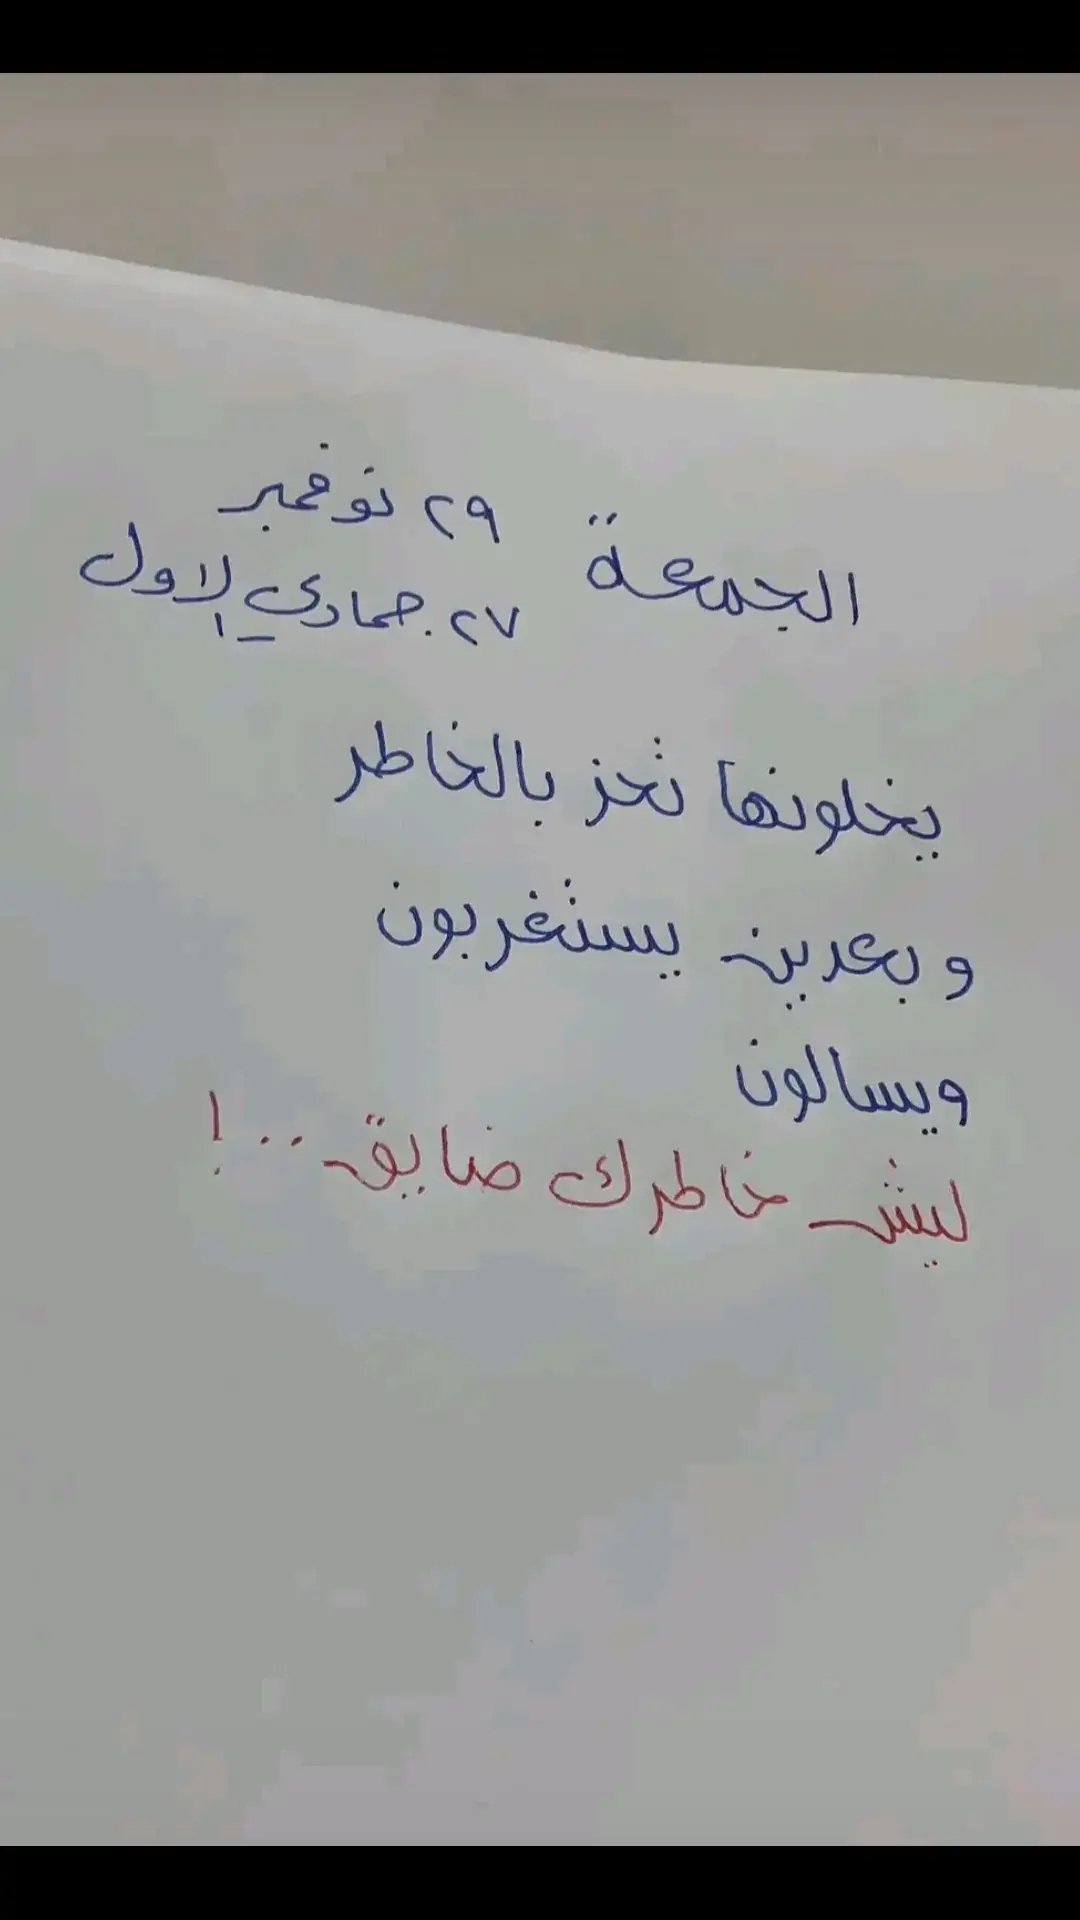 الجمعة ٢٩ نوفمبر
٢٧ جمادي الاول
يخلونها تحز بالخاطر
وبعدين يستغربون
ويسالون
ليش خاطرك ضايق ..!